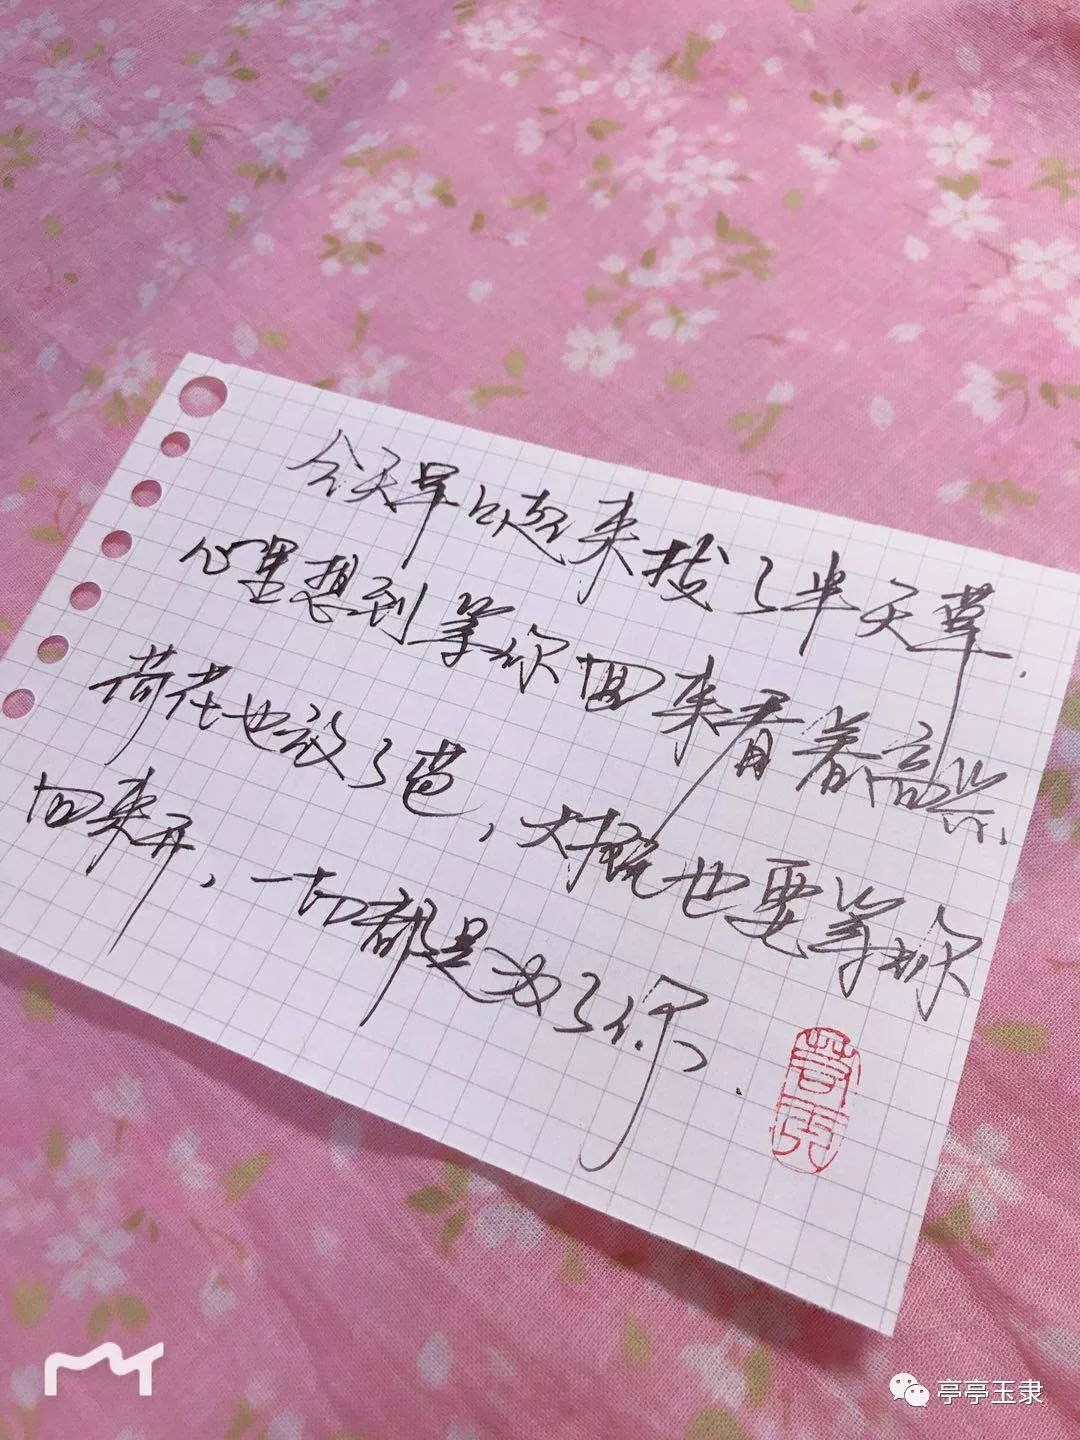 今天早上起来拔了半天草.
心里想到等你回来看着高兴,
荷花也放了苞,大概也要等你
回来开,一切都是为了你.
亭亭玉隶